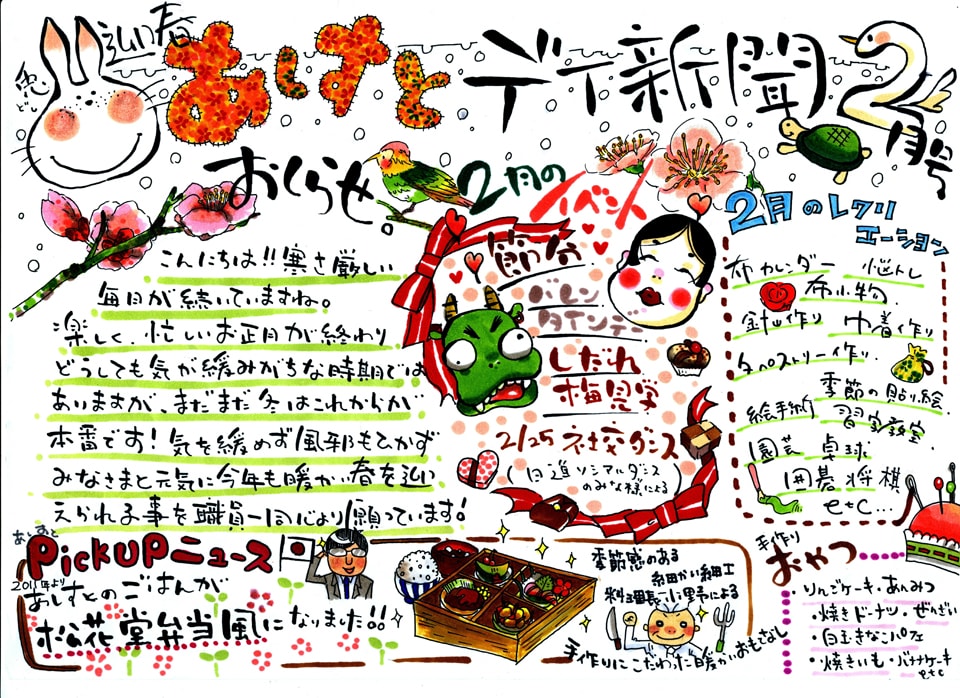 迎春
兎どし
あしすと デイ新聞 2月号
おしらせ。
こんにちは!!寒さ厳しい
毎日が続いていますね。
楽しく、忙しいお正月が終わり
どうしても気が緩みがちな時期では
ありますが、まだまだ冬はこれからが
本番です!気を緩めず風邪もひかず
みなさまと元気に今年も暖かい春を迎
えられる事を職員一同心より願っています!
2月の
イベント
節分
バレン
タインデー
しだれ
梅見学
2/25 社交ダンス
(日進ソシアルダンス
のみな様による)
2月のレクリ
エーション
布カレンダー 脳トレ
布小物
針山作り 巾着作り
タペストリー作り
季節の貼り絵
絵手紙 習字教室
園芸 卓球
囲碁 将棋
etc...
あしすと
PickUPニュース
2011年より
あしすとのごはんが
松花堂弁当風になりました!!
季節感のある
細かい細工
料理長小野寺による
手作りにこだわった暖かいおもてなし
手作り
おやつ
・りんごケーキ・あんみつ
・焼きドーナツ・ぜんざい
・白玉きなこパフェ
・焼きいも・バナナケーキ
etc